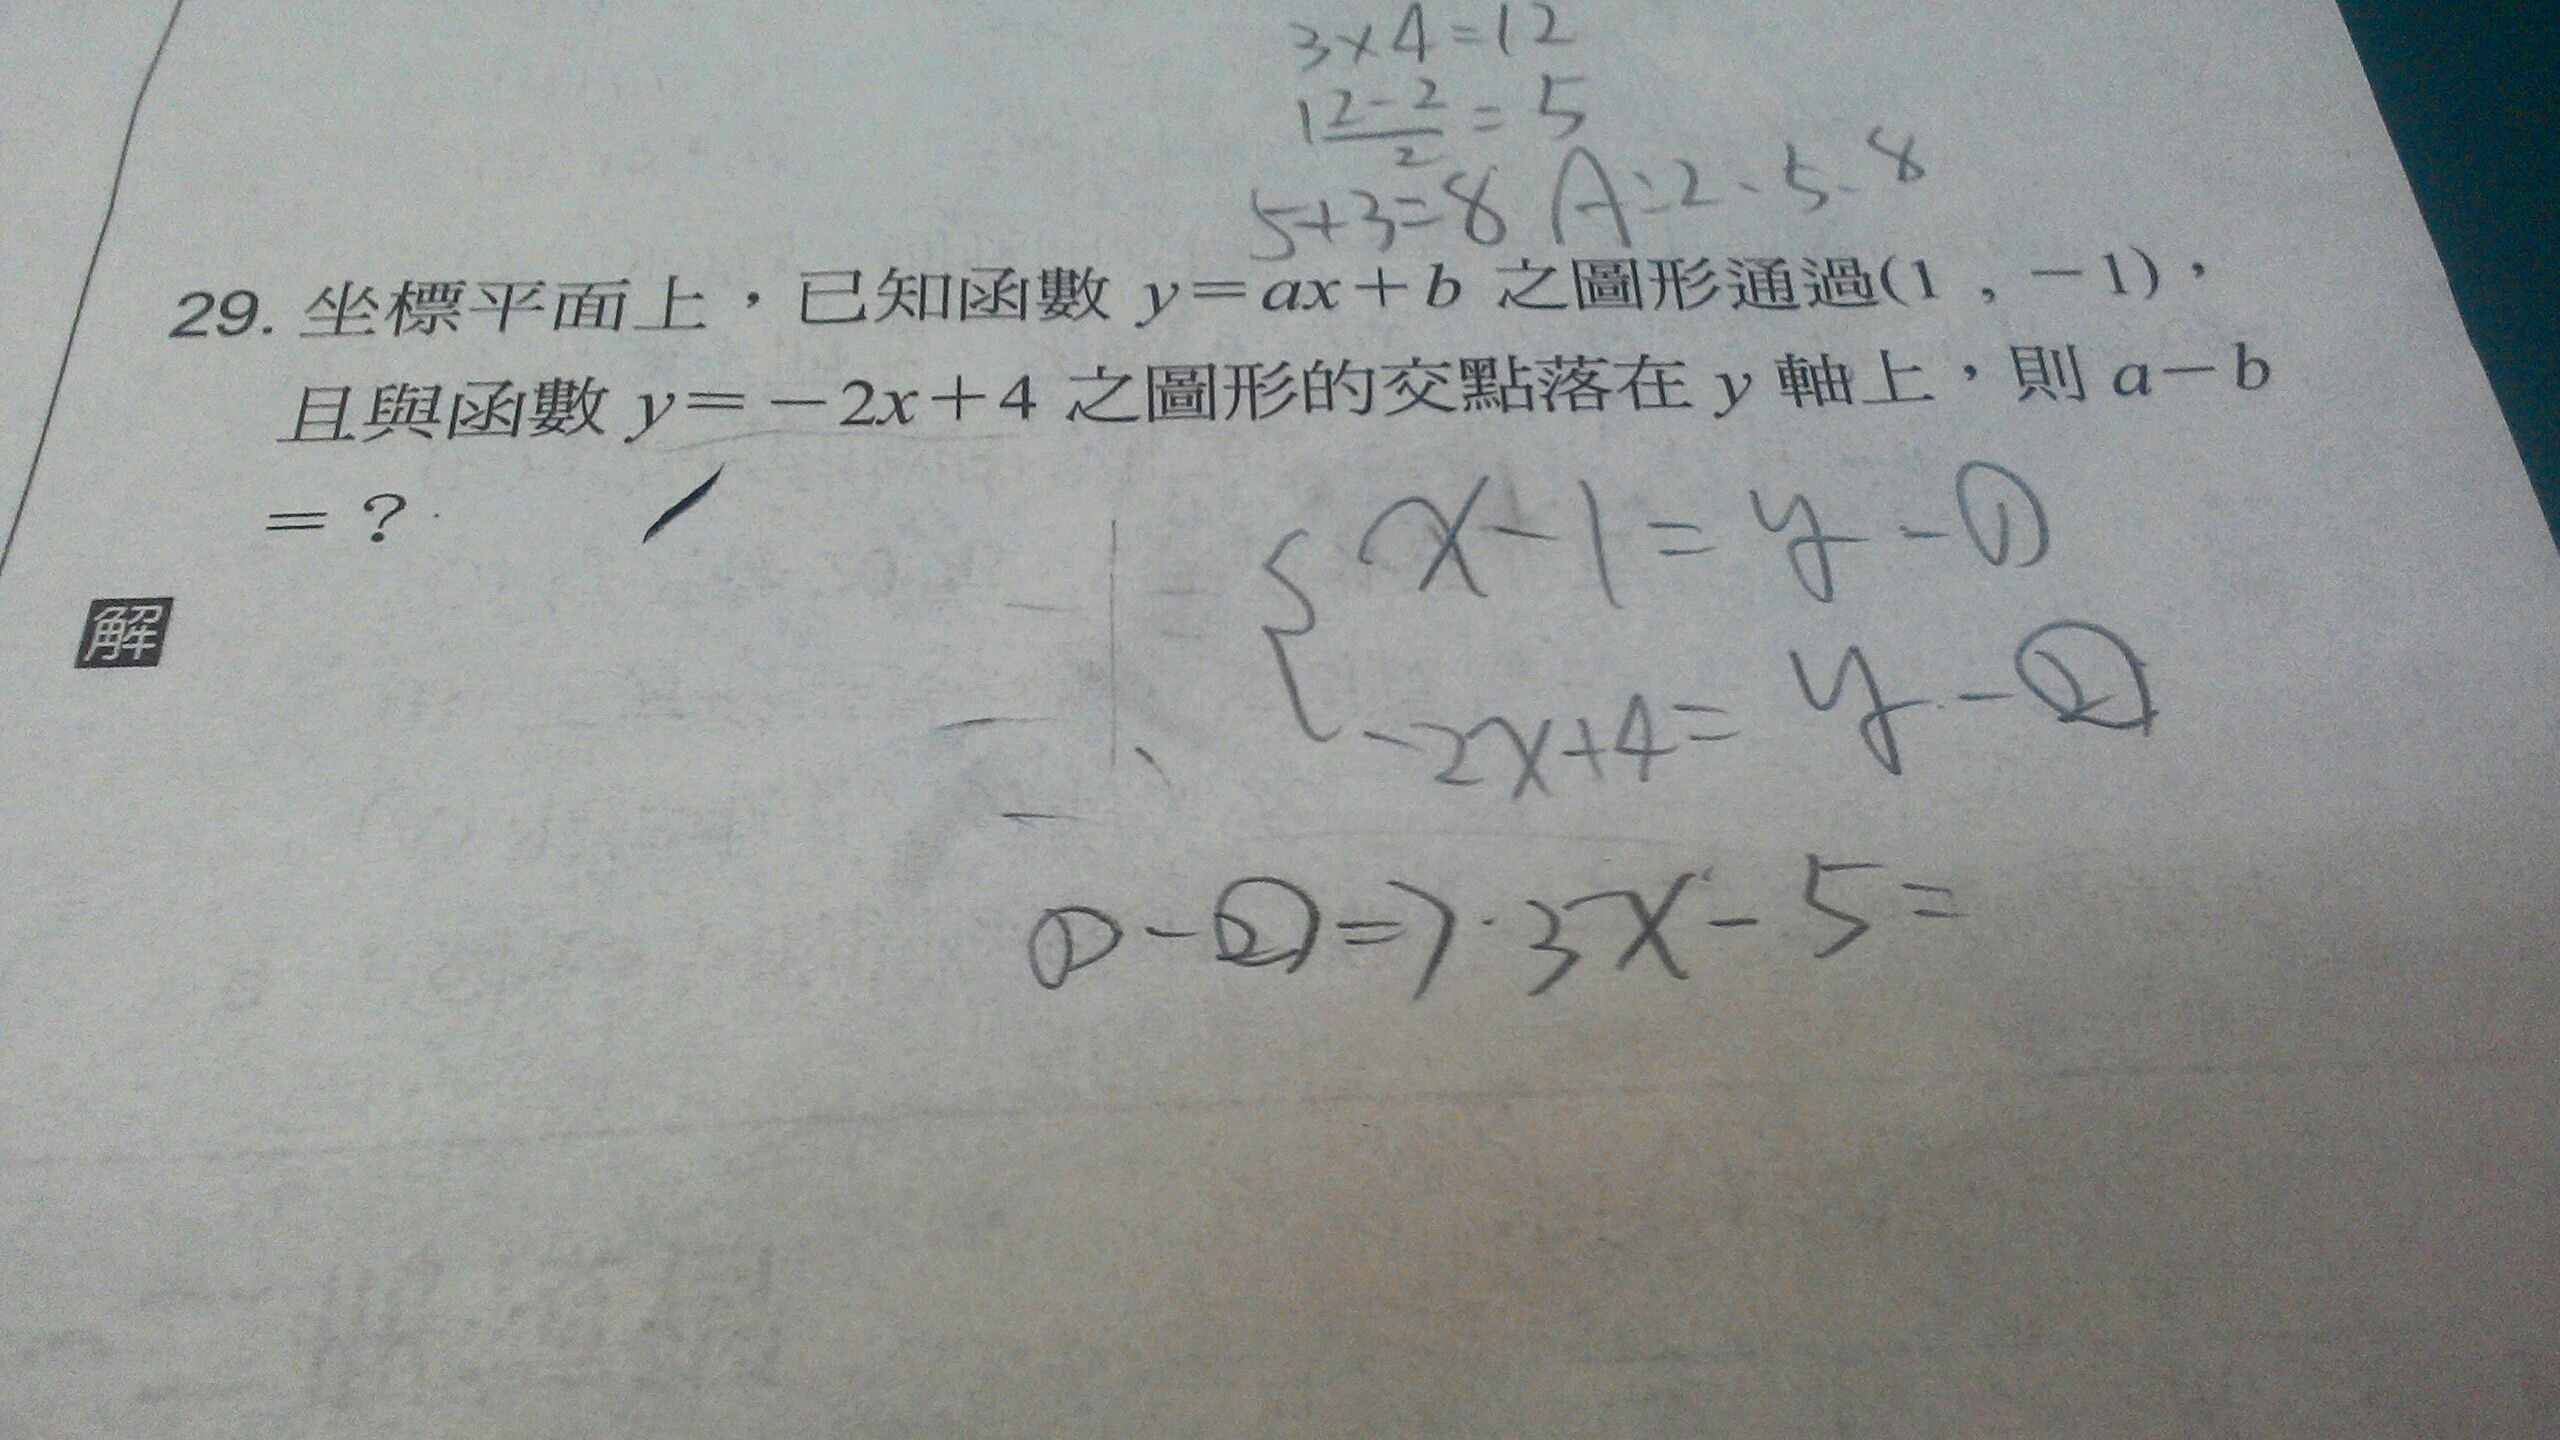 3×4=12
12-2/2=5
5+3=8 A:2-5-8
29. 坐標平面上，已知函數 y=ax+b 之圖形通過(1 , -1)，
且與函數 y=-2x+4 之圖形的交點落在 y 軸上，則 a-b
=？
解
x-1=y-①
-2x+4=y-②
①-②=>3x-5=